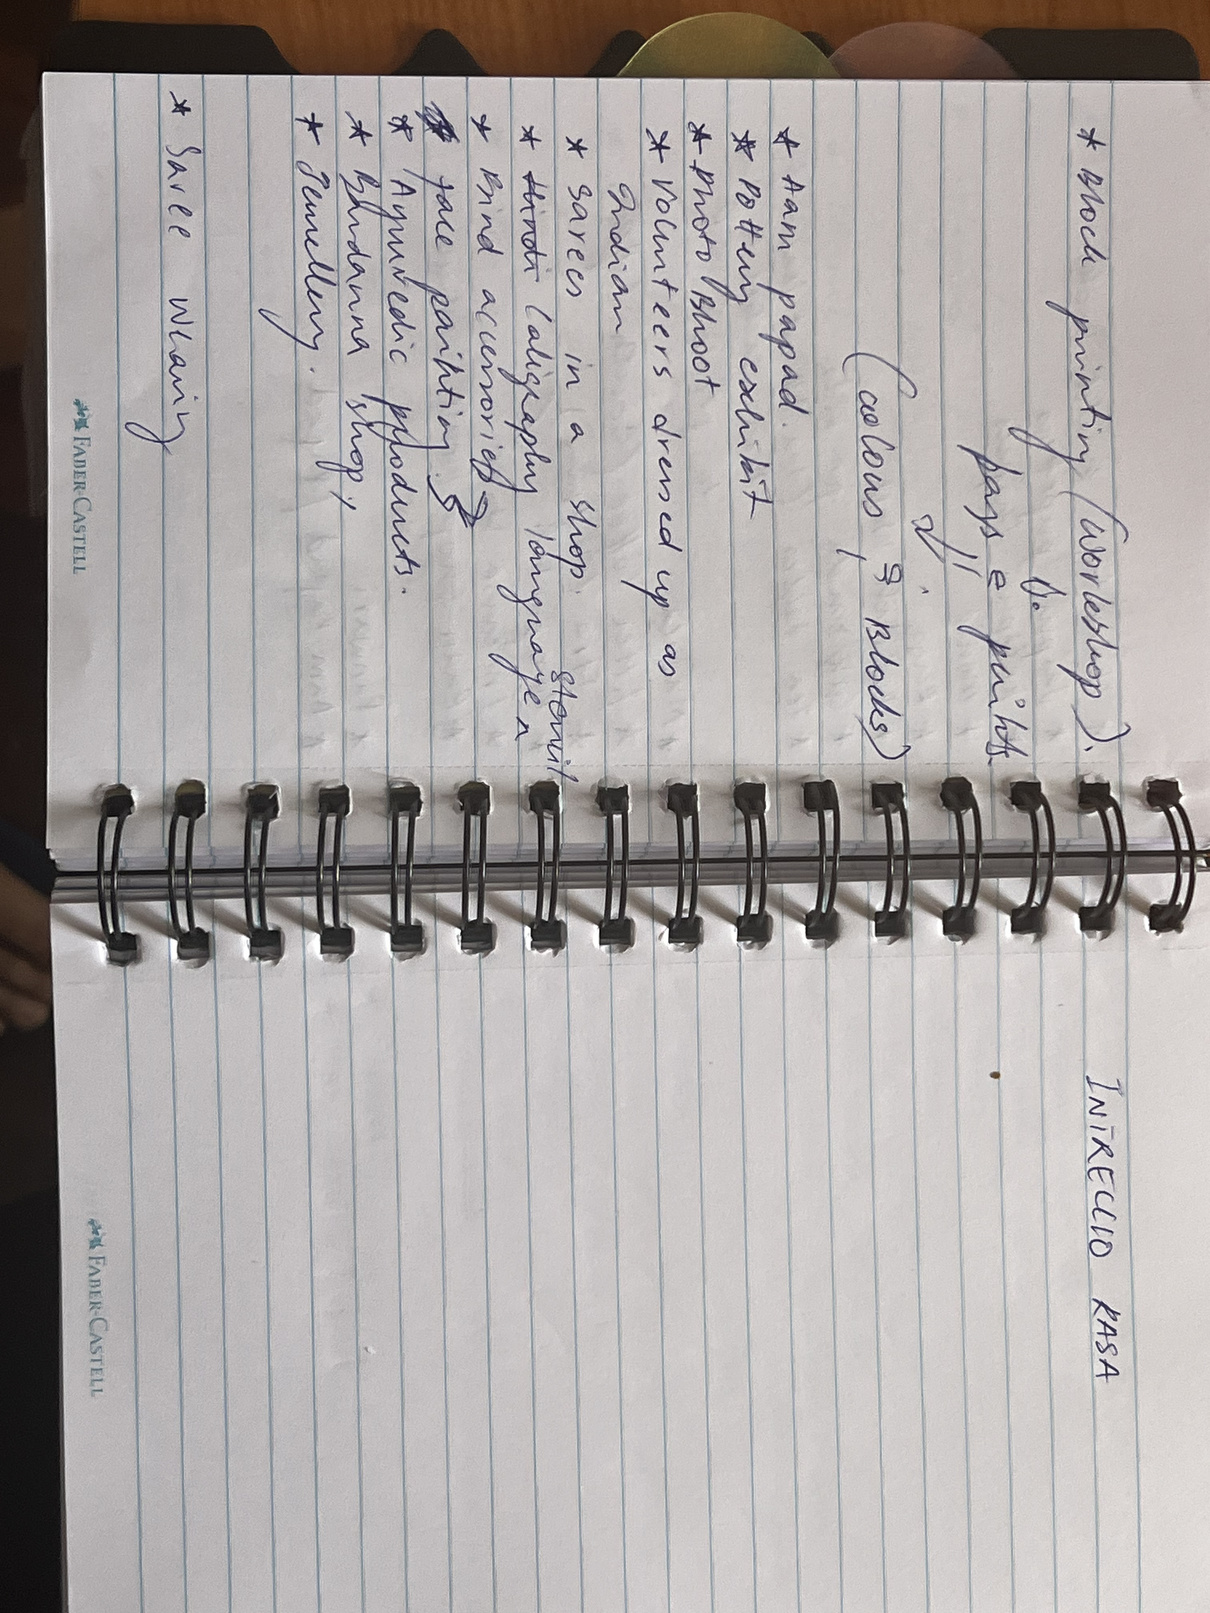 * Block printing (workshop).
bags e prints
(colours & Blocks)
* Aam papad.
* Pottery exhibit
* Photo Bhoot
* Volunteers dressed up as
Indian
* Sarees in a shop.
stencil
* Hindi Caligraphy language
* Bind accessories
* face painting.
* Ayurvedic products.
* Bandanna shop,
* Jewellery.
* Saree Wearing
FABER-CASTELL
INTRECCIO RASA
FABER-CASTELL